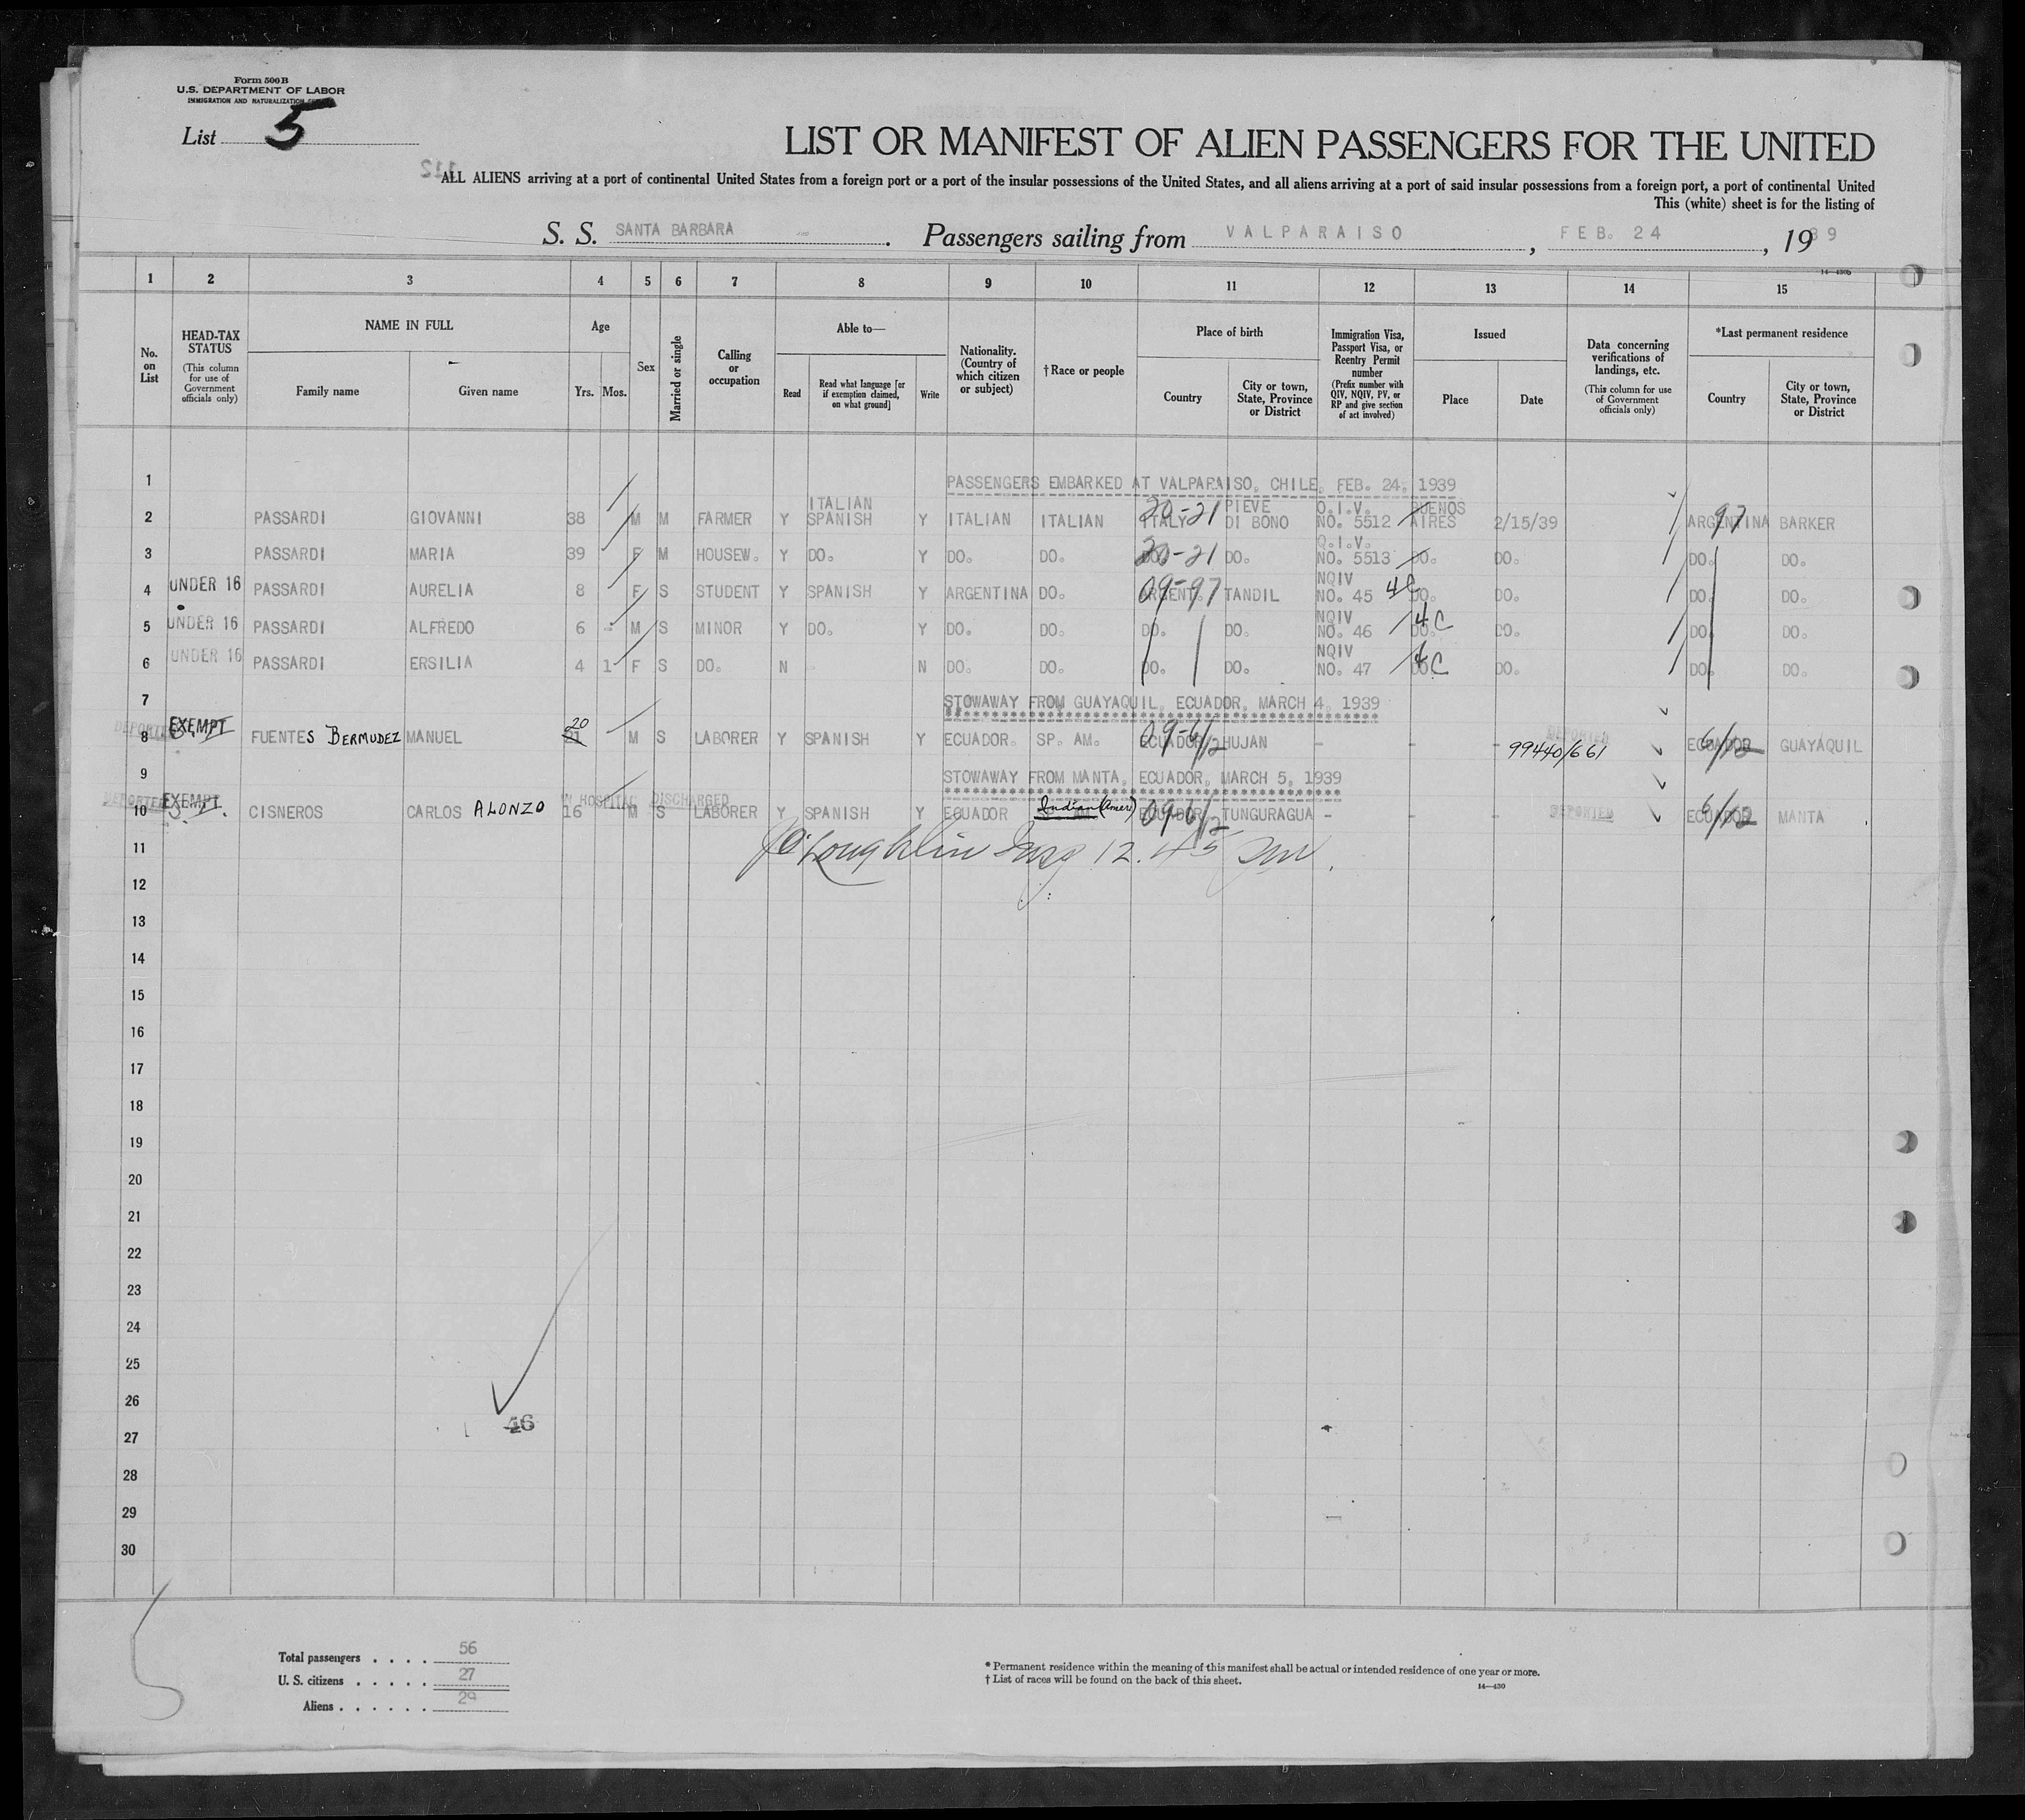 Form 500B
U.S. DEPARTMENT OF LABOR
IMMIGRATION AND NATURALIZATION
List 5
LIST OR MANIFEST OF ALIEN PASSENGERS FOR THE UNITED
ALL ALIENS arriving at a port of continental United States from a foreign port or a port of the insular possessions of the United States, and all aliens arriving at a port of said insular possessions from a foreign port, a port of continental United
This (white) sheet is for the listing of
S. S. SANTA BARBARA. Passengers sailing from VALPARAISO, FEB. 24, 1939
1 2 3 4 5 6 7 8 9 10 11 12 13 14 15
No. on List
HEAD-TAX STATUS (This column for use of Government officials only)
NAME IN FULL Family name Given name
Age Yrs. Mos.
Sex
Married or single
Calling or occupation
Able to— Read Read what language [or if exemption claimed, on what ground] Write
Nationality. (Country of which citizen or subject)
†Race or people
Place of birth Country City or town, State, Province or District
Immigration Visa, Passport Visa, or Reentry Permit number (Prefix number with QIV, NQIV, PV, or RP and give section of act involved)
Issued Place Date
Data concerning verifications of landings, etc. (This column for use of Government officials only)
*Last permanent residence Country City or town, State, Province or District
1 PASSENGERS EMBARKED AT VALPARAISO, CHILE, FEB. 24, 1939
2 PASSARDI GIOVANNI 38 M M FARMER Y ITALIAN SPANISH Y ITALIAN ITALIAN ITALY 20-21 PIEVE DI BONO Q.I.V. NO. 5512 BUENOS AIRES 2/15/39 ARGENTINA 97 BARKER
3 PASSARDI MARIA 39 F M HOUSEW. Y DO. Y DO. DO. DO. 20-21 DO. Q.I.V. NO. 5513 DO. DO. DO. DO.
4 UNDER 16 PASSARDI AURELIA 8 F S STUDENT Y SPANISH Y ARGENTINA DO. ARGENT. 09-97 TANDIL NQIV NO. 45 4C DO. DO. DO. DO.
5 UNDER 16 PASSARDI ALFREDO 6 - M S MINOR Y DO. Y DO. DO. DO. DO. NQIV NO. 46 4C DO. DO. DO. DO.
6 UNDER 16 PASSARDI ERSILIA 4 1 F S DO. N N DO. DO. DO. DO. NQIV NO. 47 4C DO. DO. DO. DO.
7 STOWAWAY FROM GUAYAQUIL, ECUADOR, MARCH 4, 1939
8 DEPORTED EXEMPT FUENTES BERMUDEZ MANUEL 21 20 M S LABORER Y SPANISH Y ECUADOR. SP. AM. ECUADOR 09-6/12 HUJAN - - - DEPORTED 99440/661 ECUADOR 6/12 GUAYAQUIL
9 STOWAWAY FROM MANTA, ECUADOR, MARCH 5, 1939
10 DEPORTED EXEMPT. CISNEROS CARLOS ALONZO IN HOSPITAL DISCHARGED 16 M S LABORER Y SPANISH Y ECUADOR SP. AM. Indian (Amer) ECUADOR 09-6/12 TUNGURAGUA - - - DEPORTED ECUADOR 6/12 MANTA
11
J O'Loughlin Insp 12.45 pm.
12
13
14
15
16
17
18
19
20
21
22
23
24
25
26
46
27
28
29
30
Total passengers . . . . 56
U. S. citizens . . . . . 27
Aliens . . . . . . 29
* Permanent residence within the meaning of this manifest shall be actual or intended residence of one year or more.
† List of races will be found on the back of this sheet.
14—430